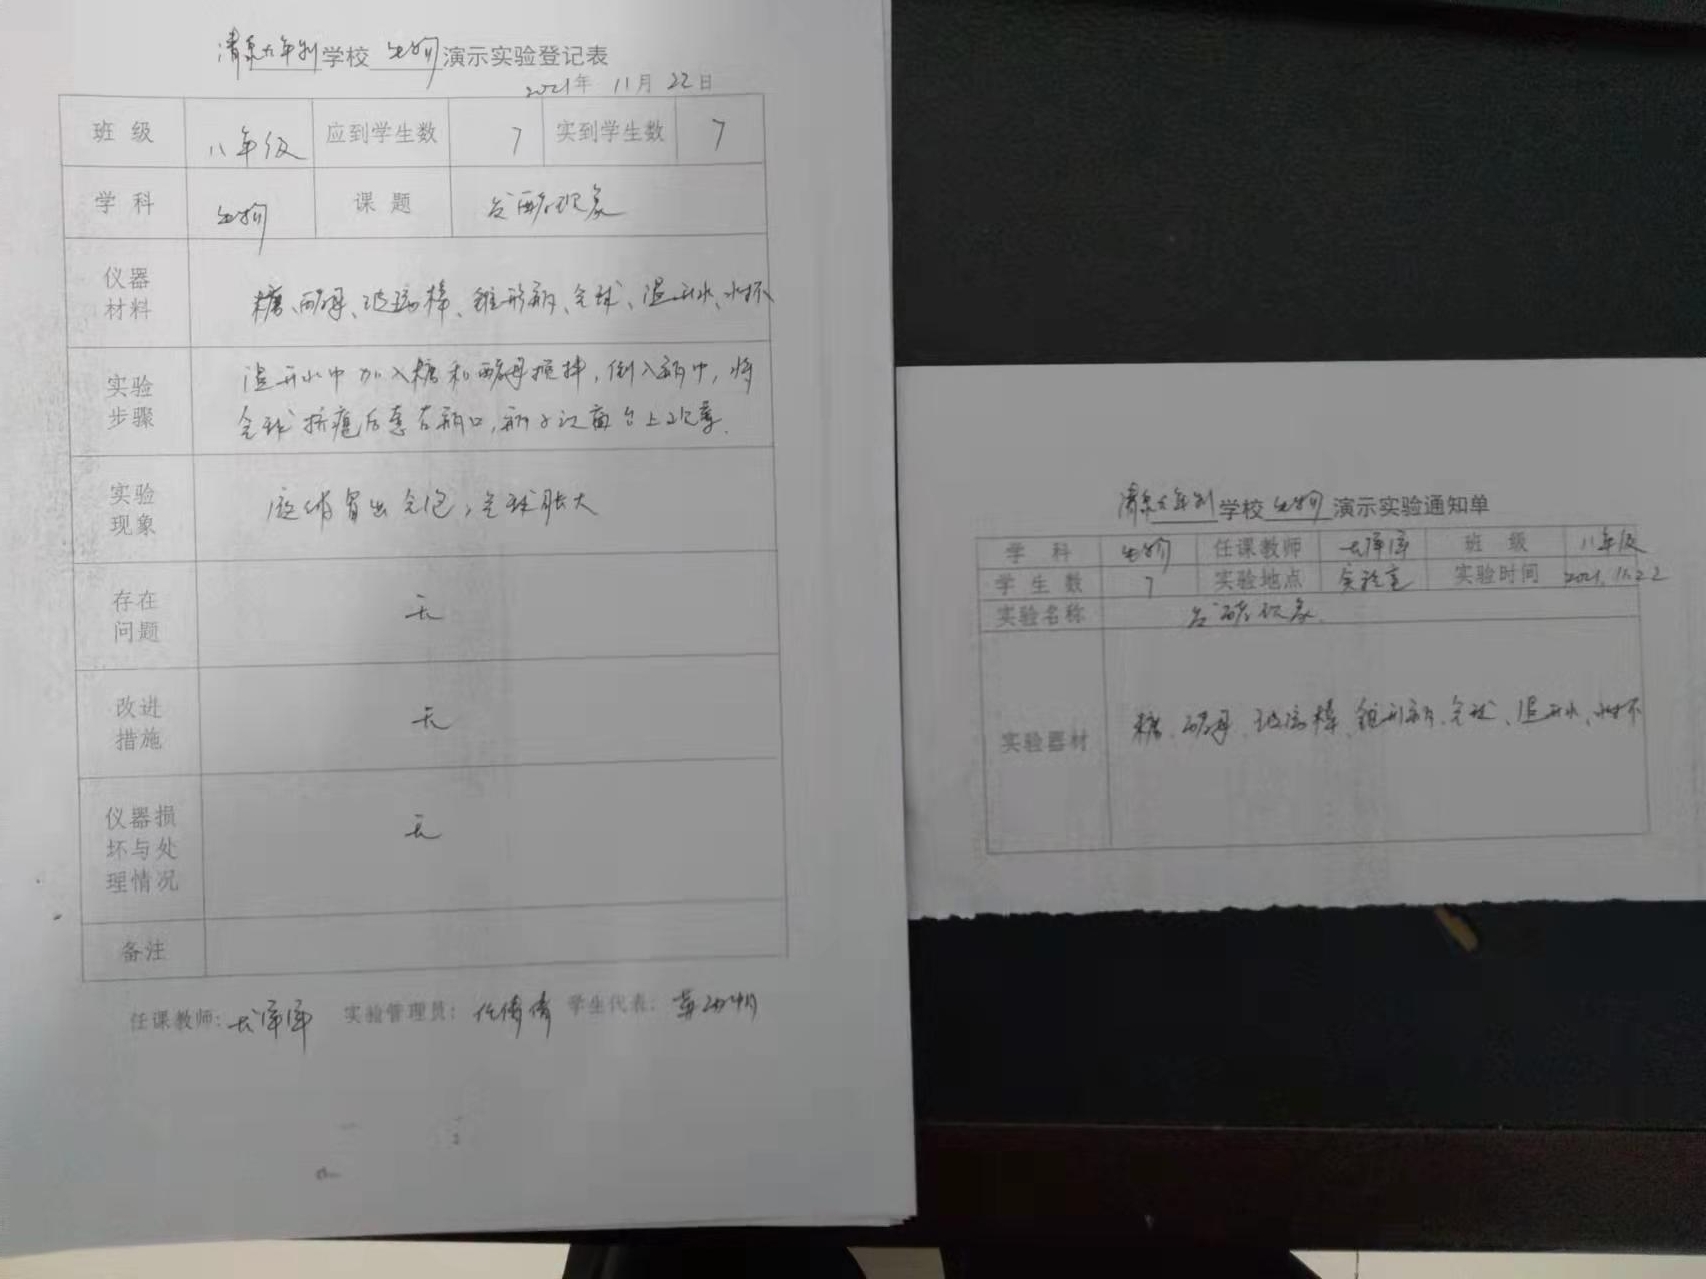 清泉九年制学校 生物 演示实验登记表
2021年 11月 22日
班 级 八年级 应到学生数 7 实到学生数 7
学 科 生物 课 题 发酵现象
仪器
材料
糖、酵母、玻璃棒、锥形瓶、气球、温开水、水杯
实验
步骤
温开水中加入糖和酵母搅拌,倒入瓶中,将
气球挤瘪后套在瓶口,瓶子放窗台上观察.
实验
现象
液体冒出气泡,气球胀大
存在
问题
无
改进
措施
无
仪器损
坏与处
理情况
无
备注
任课教师: 实验管理员:任倩倩 学生代表:
清泉九年制学校 生物 演示实验通知单
学 科 生物 任课教师 班 级 八年级
学 生 数 7 实验地点 实验室 实验时间 2021.11.22
实验名称 发酵现象.
实验器材 糖、酵母、玻璃棒、锥形瓶、气球、温开水、水杯